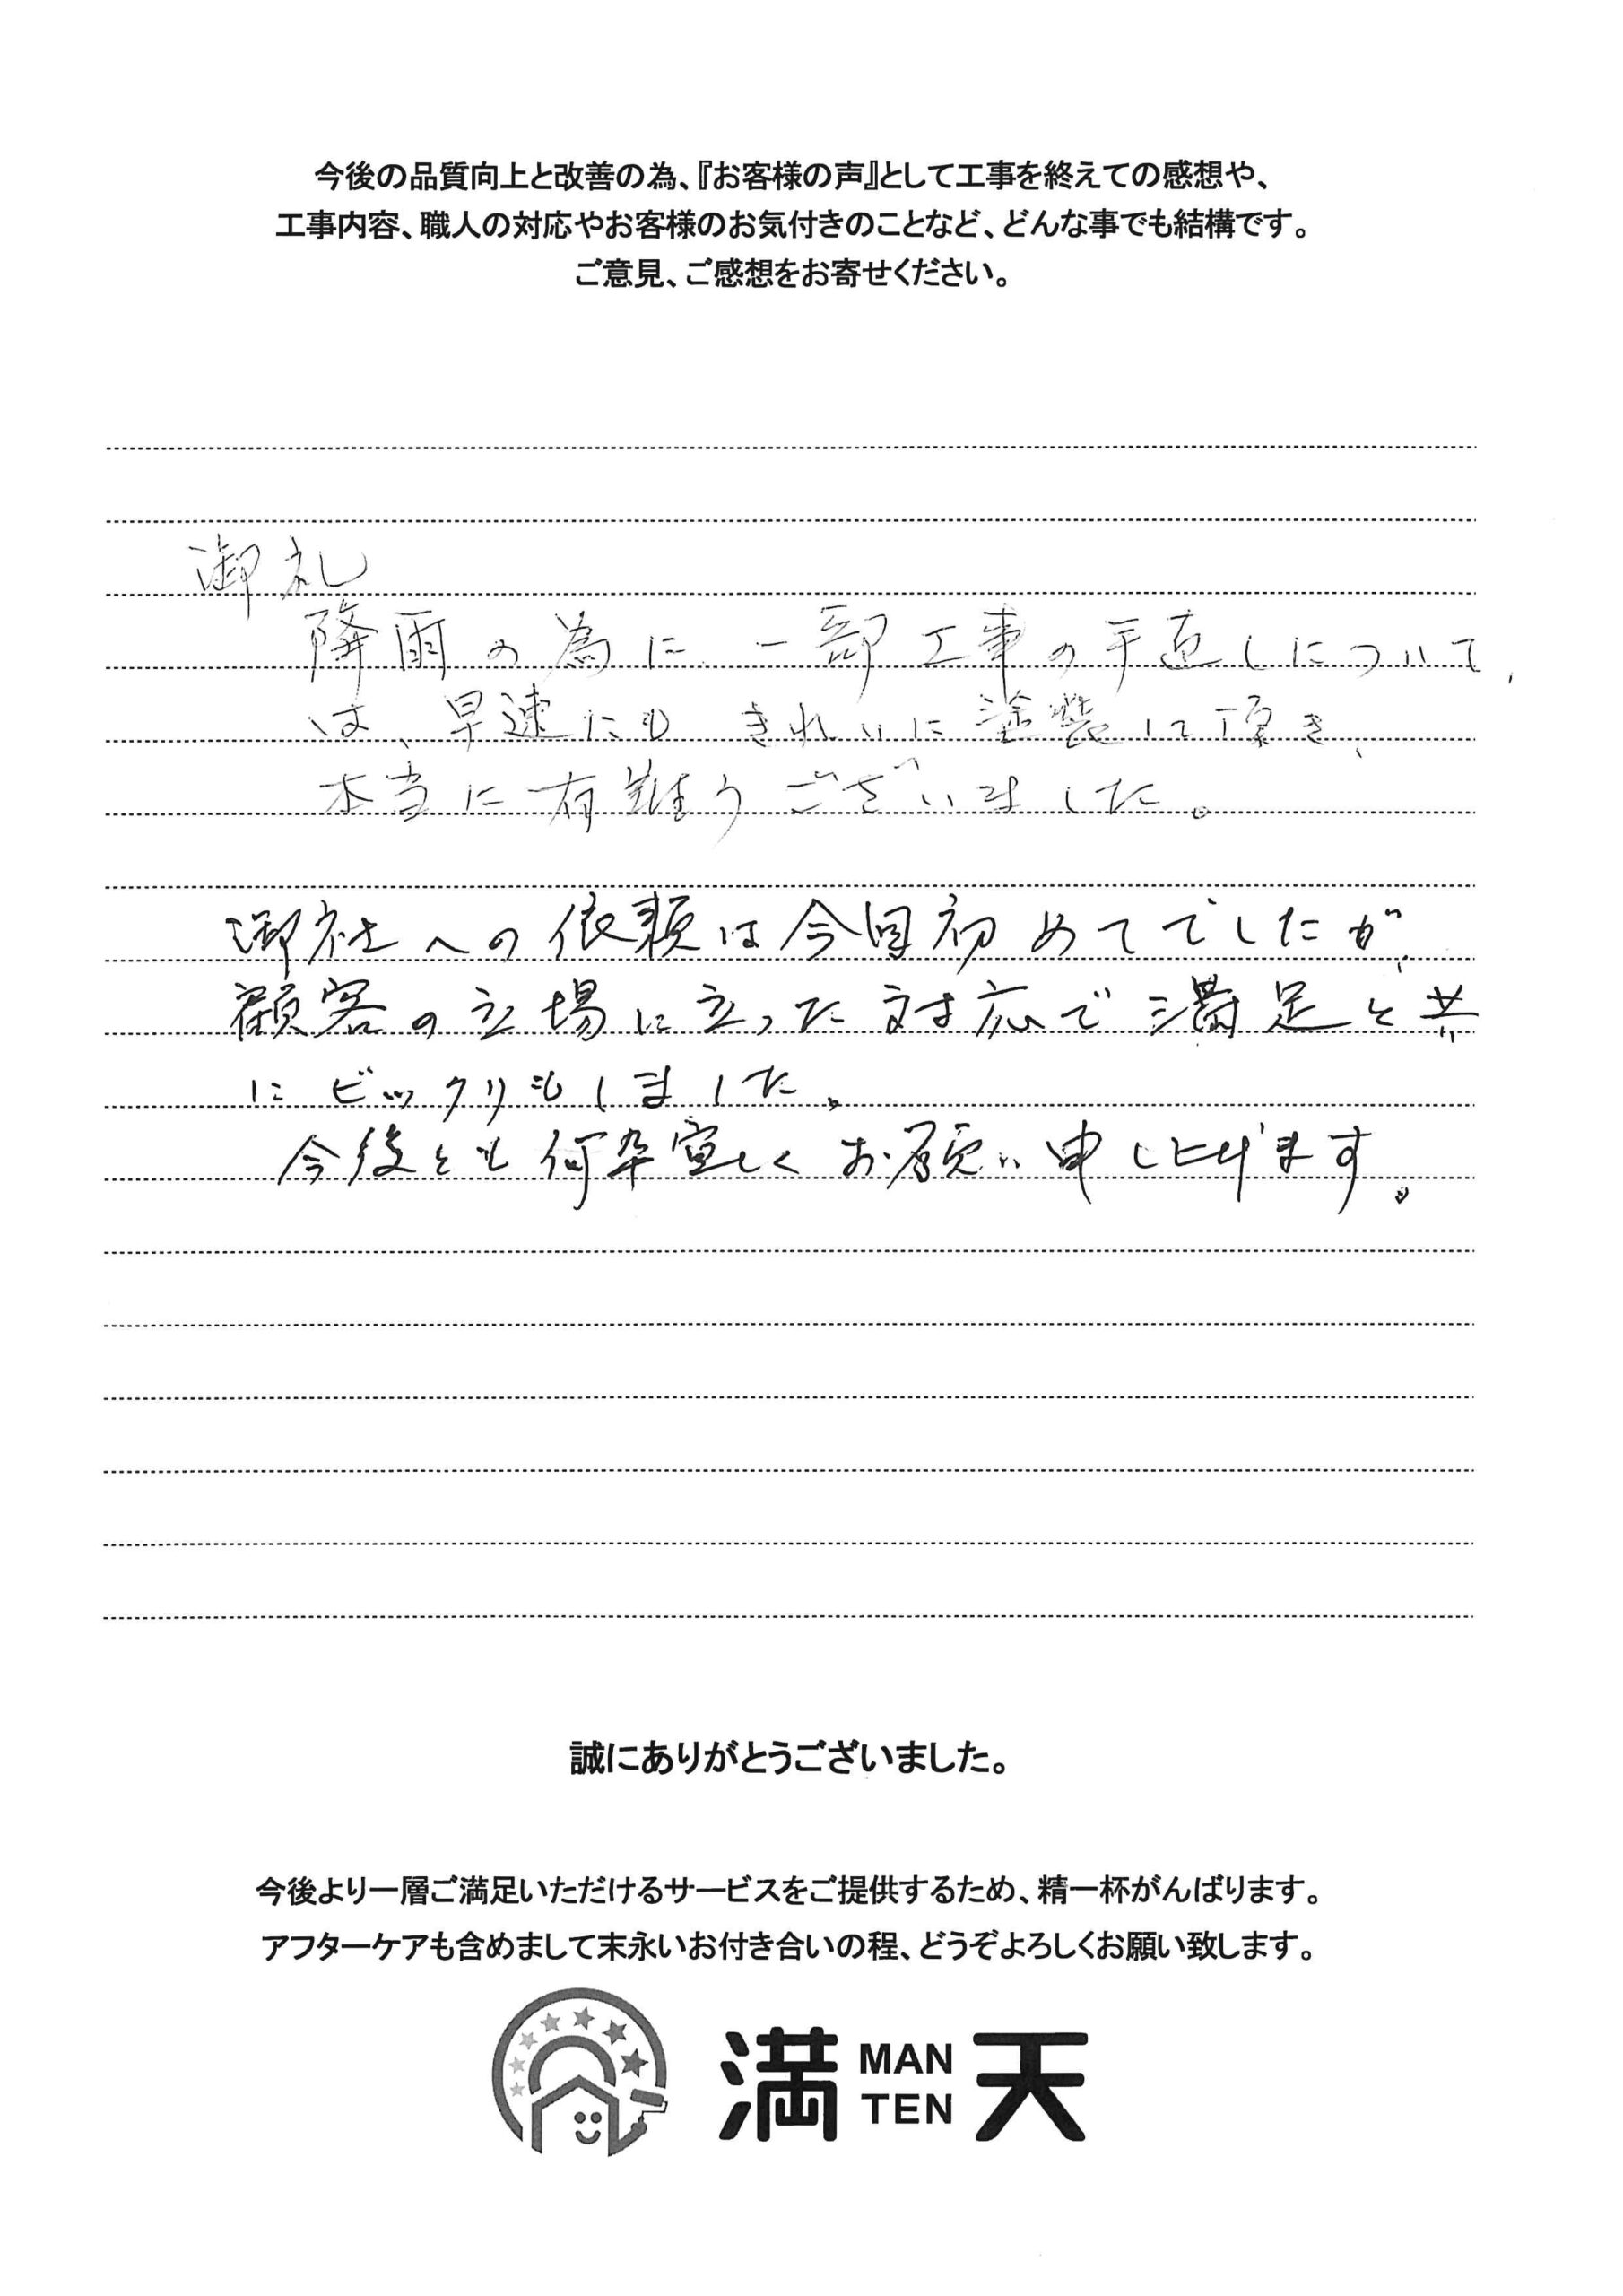 今後の品質向上と改善の為、『お客様の声』として工事を終えての感想や、
工事内容、職人の対応やお客様のお気付きのことなど、どんな事でも結構です。
ご意見、ご感想をお寄せください。
御礼
降雨の為に、一部工事の手直しについて
は、早速にも きれいに塗装して頂き、
本当に有難うございました。
御社への依頼は今回初めてでしたが、
顧客の立場に立った対応で満足と共
にビックリもしました。
今後とも何卒宜しくお願い申し上げます。
誠にありがとうございました。
今後より一層ご満足いただけるサービスをご提供するため、精一杯がんばります。
アフターケアも含めまして末永いお付き合いの程、どうぞよろしくお願い致します。
満天 MAN TEN